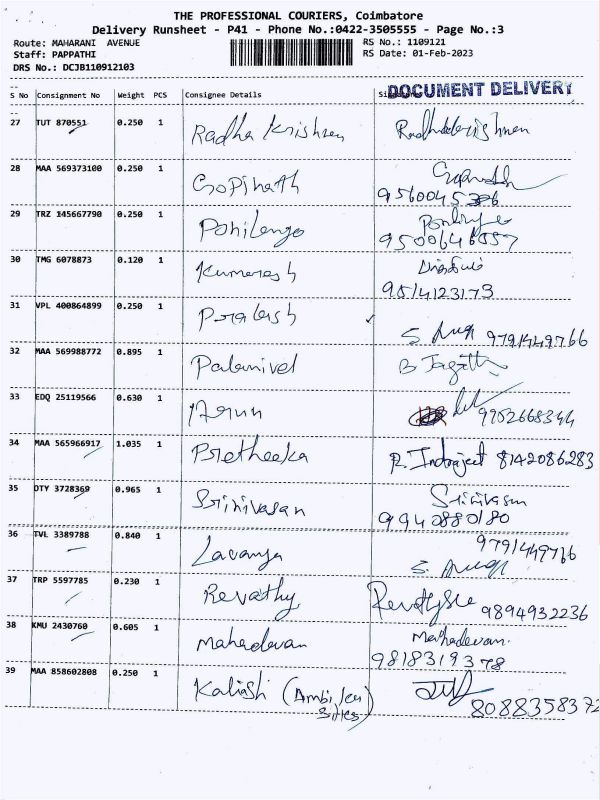 THE PROFESSIONAL COURIERS, Coimbatore
Delivery Runsheet - P41 - Phone No.:0422-3505555 - Page No.:3
Route: MAHARANI AVENUE RS No.: 1109121
Staff: PAPPATHI RS Date: 01-Feb-2023
DRS No.: DCJB110912103
DOCUMENT DELIVERY
S No Consignment No Weight PCS Consignee Details
27 TUT 870551 0.250 1 Radha Krishnan
28 MAA 569373100 0.250 1 Gopinath
29 TRZ 145667790 0.250 1 Pohilengo
9500646557
30 TMG 6078873 0.120 1 Kumaresh
9514123173
31 VPL 400864899 0.250 1 Prakash
9791449766
32 MAA 569988772 0.895 1 Palanivel B Jagath
33 EDQ 25119566 0.630 1 Arun
9952668344
34 MAA 565966917 1.035 1 Pretheeka R. Indrajeet 8142086283
35 DTY 3728369 0.965 1 Srinivasan Srinivasan
9940880180
36 TVL 3389788 0.840 1 Lavanya 9791449766
37 TRP 5597785 0.230 1 Revathy 9894932236
38 KMU 2430760 0.605 1 Mahadevan Mahadevan.
9818319378
39 MAA 858602808 0.250 1 Kalaish
8088358372